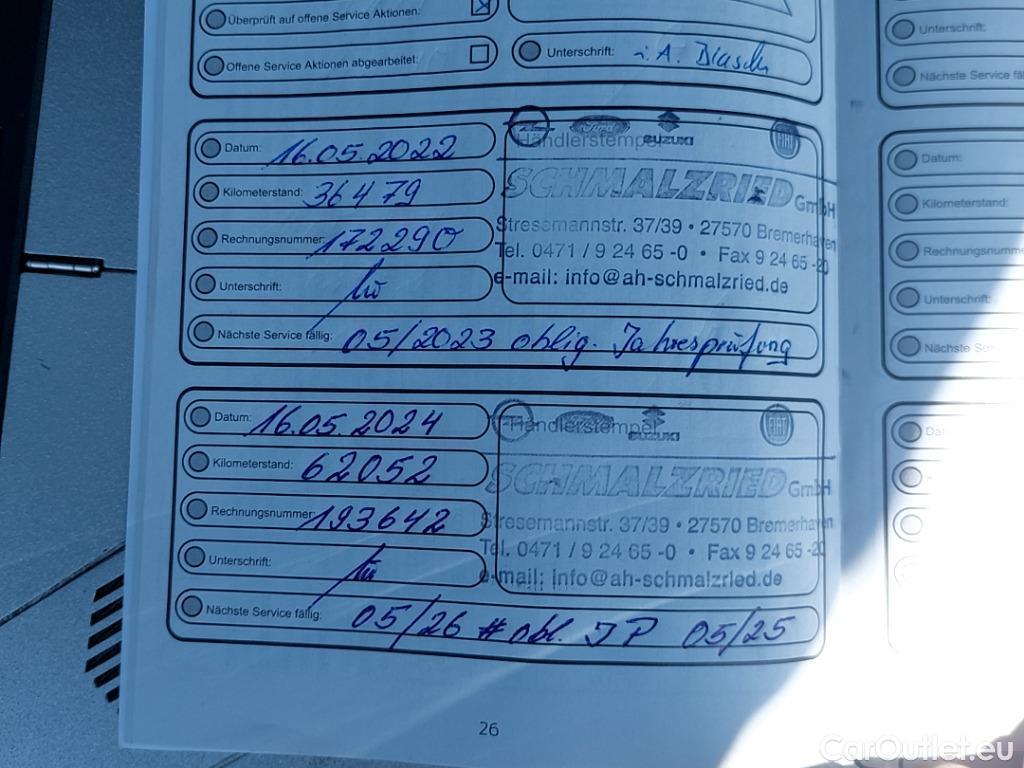 Überprüft auf offene Service Aktionen:
Offene Service Aktionen abgearbeitet:
Unterschrift: i. A.
Datum: 16.05.2022
Kilometerstand: 36479
Rechnungsnummer: 172290
Unterschrift:
Nächste Service fällig: 05/2023 oblig. Jahresprüfung
Händlerstempel
Ford SUZUKI FIAT
SCHMALZRIED GmbH
Stresemannstr. 37/39 • 27570 Bremerhaven
Tel. 0471 / 9 24 65 -0 • Fax 9 24 65 -20
e-mail: info@ah-schmalzried.de
Datum: 16.05.2024
Kilometerstand: 62052
Rechnungsnummer: 193642
Unterschrift:
Nächste Service fällig: 05/26 # obl. JP 05/25
Händlerstempel
SUZUKI FIAT
SCHMALZRIED GmbH
Stresemannstr. 37/39 • 27570 Bremerhaven
Tel. 0471 / 9 24 65 -0 • Fax 9 24 65 -20
e-mail: info@ah-schmalzried.de
26
Unterschrift:
Nächste Service fä
Datum:
Kilometerstand:
Rechnungsnumm
Unterschrift:
Nächste Se
Dat
CarOutlet.eu